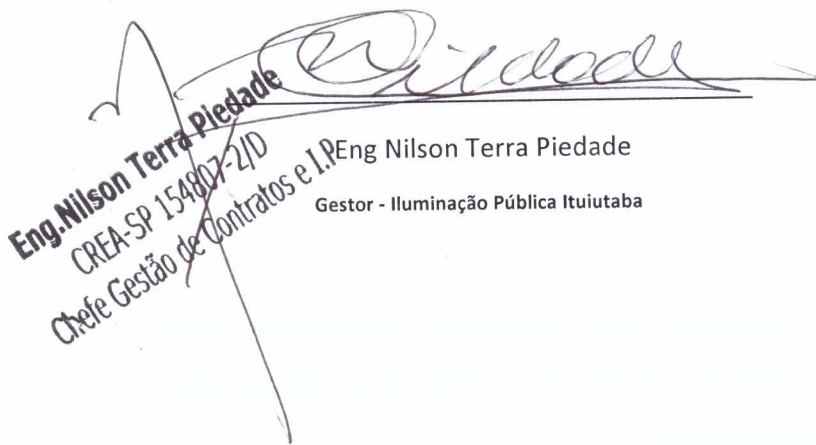 Piedade
Eng.Nilson Terra Piedade
CREA-SP 154807-2/D
Chefe Gestão de Contratos e I.P
Eng Nilson Terra Piedade
Gestor - Iluminação Pública Ituiutaba